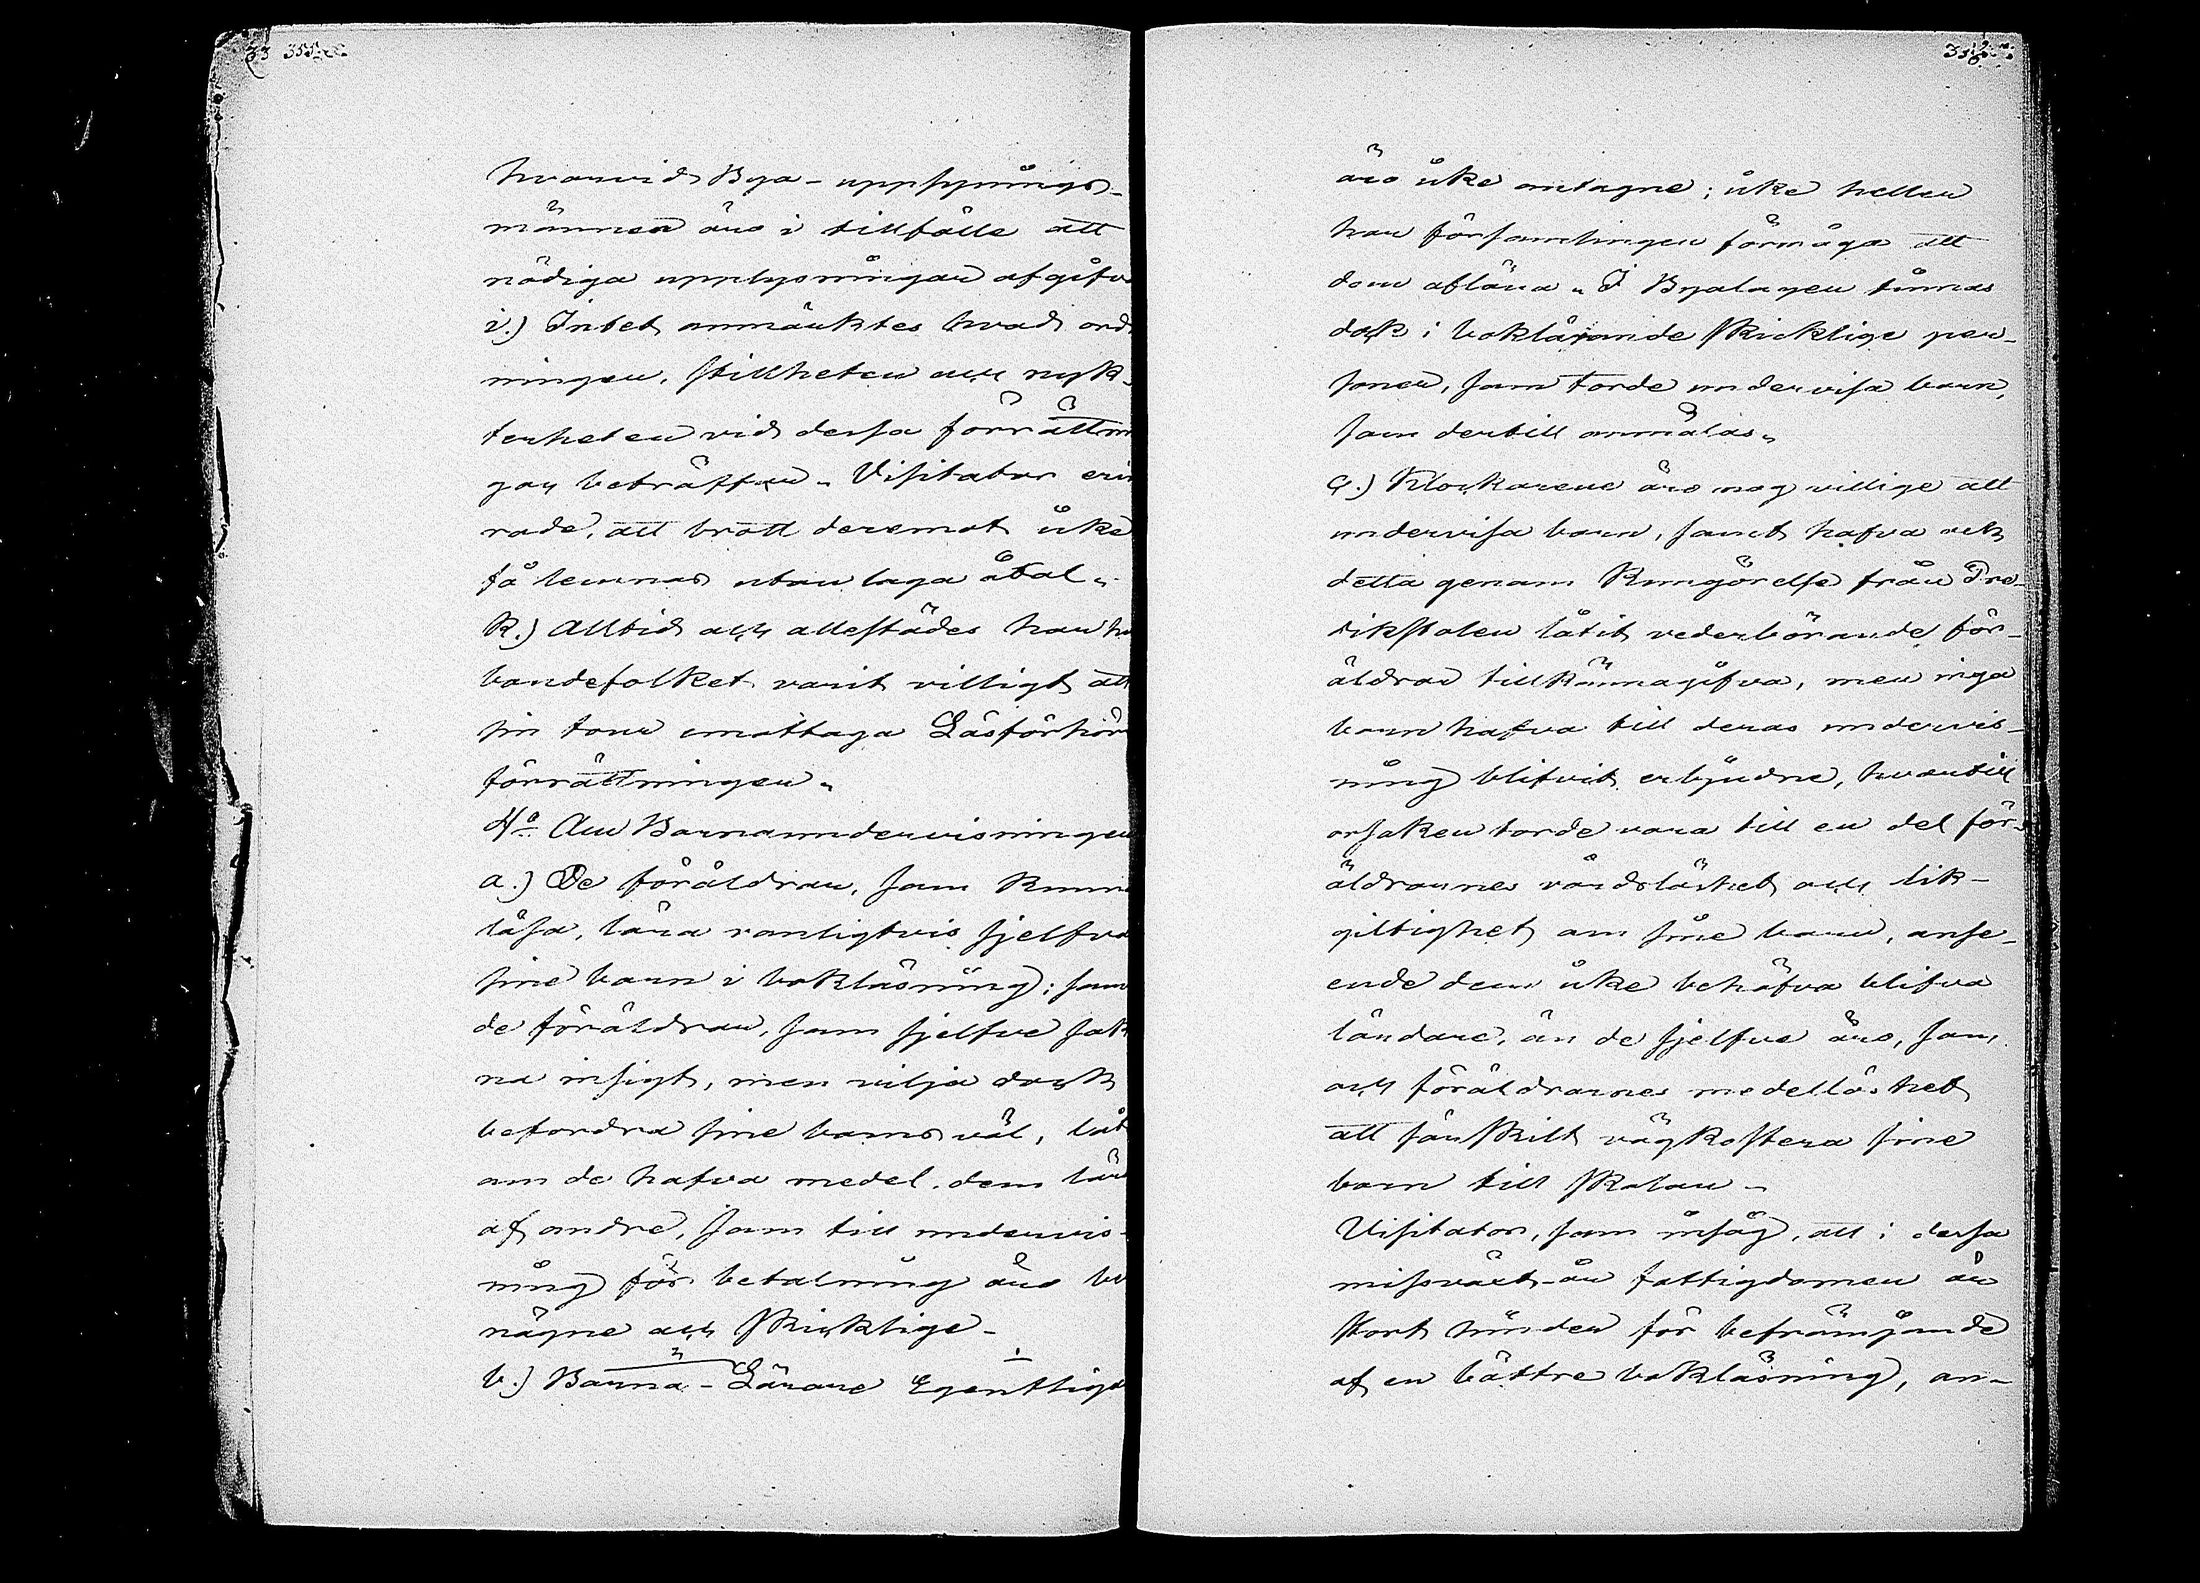 33 355
hvarvid Bya-uppsynings-
männen äro i tillfälle att
nödiga upplysningar afgifv
i.) Intet anmärktes hvad ord
ningen, stillheten och nyk-
terheten vid dessa förrättnin
gar beträffar. Visitator erin
rade, att brott deremot icke
få lemnas utan laga åtal.
k.) Alltid och allestädes har hu
bondefolket varit villigt att
sin tour emottaga Läsförhörs
förrättningen.
4o Om Barnaundervisningen
a.) De föräldrar, som kunn
läsa, lära vanligtvis sjelfva
sine barn i bokläsning; som
de föräldrar, som sjelfve sak
na insigt, men vilja dock
befordra sine barns väl, låt
om de hafva medel, dem lär
af andre, som till undervis-
ning för betalning äro be
nägne och skicklige.
b.) Barna-Lärare Egentlige
356
äro icke antagne; icke heller
har församlingen förmåga att
dem aflöna. I Byalagen finnas
dock i boklärande skicklige per-
soner, som torde undervisa barn,
som dertill anmälas.
c.) Klockarene äro nog villige att
undervisa barn, samt hafva ock
detta genom Kungörelse från Pre-
dikstolen låtit vederbörande för-
äldrar tillkännagifva, men inga
barn hafva till deras undervis-
ning blifvit erbjudne, hvartill
orsaken torde vara till en del för-
äldrarnes vårdslöshet och lik-
giltighet om sine barn, anse-
ende dem icke behöfva blifva
lärdare, än de sjelfve äro, som
och föräldrarnes medellöshet
att särskilt vägkostera sine
barn till skolan.
Visitator, som insåg, att i dessa
missväxt-år fattigdomen är
stort hinder för befrämjande
af en bättre bokläsning, an-